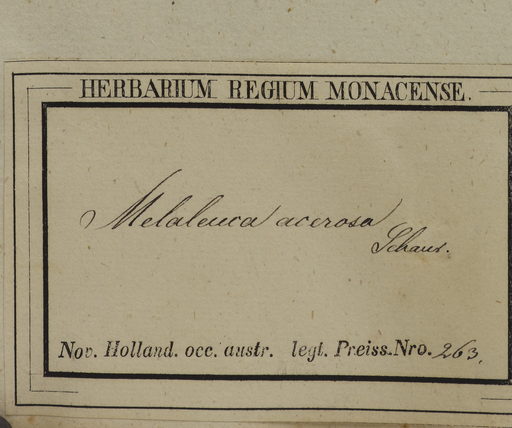 HERBARIUM REGIUM MONACENSE.
Melaleuca acerosa
Schaur.
Nov. Holland. occ. austr. legt. Preiss. Nro. 263.